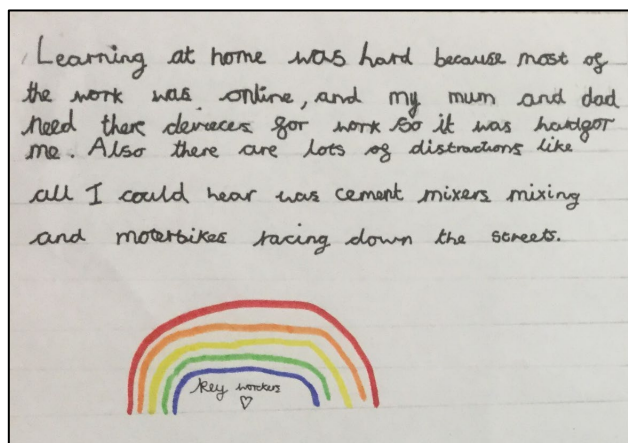 Learning at home was hard because most of
the work was online, and my mum and dad
need there devieces for work so it was hard for
me. Also there are lots of distractions like
all I could hear was cement mixers mixing
and moterbikes racing down the streets.
key workers